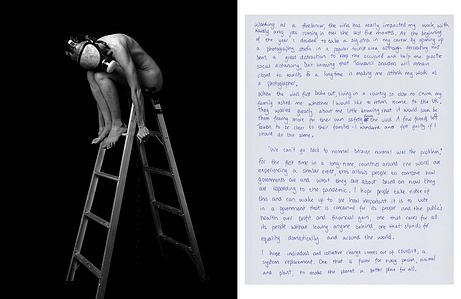 Working as a freelancer, the virus has really impacted my work, with
hardly any jobs coming in over the last five months. At the beginning
of the year I decided to take a big step in my career by opening up
a photography studio in a popular tourist area although decorating has
been a great distraction to keep me occupied and help me practice
social distancing, but knowing that Taiwan's borders will remain
closed to tourists for a long time is making me rethink my work as
a photographer.
When the virus first broke out, living in a country so close to China, my
family asked me whether I would like to return home to the UK.
They worried greatly about me little knowing that it would soon be
them fearing more for their own safety the virus. A few friends left
Taiwan to be closer to their families - I wondered and felt guilty if I
should do the same.
'We can't go back to normal because normal was the problem.'
For the first time in a long time, countries around the world are
experiencing a similar event, this allows people to compare how
governments are and what they are about based on how they
are responding to the pandemic. I hope people take notice of
this and can wake up to see how important it is to vote
in a government that is concerned for its people and the public's
health over profit and financial gain, one that cares for all
its people without leaving anyone behind, one that stands for
equality domestically and around the world.
I hope individual and collective change comes out of COVID19, a
system replacement. One that is fairer for every person, animal
and plant, to make the planet a better place for all.